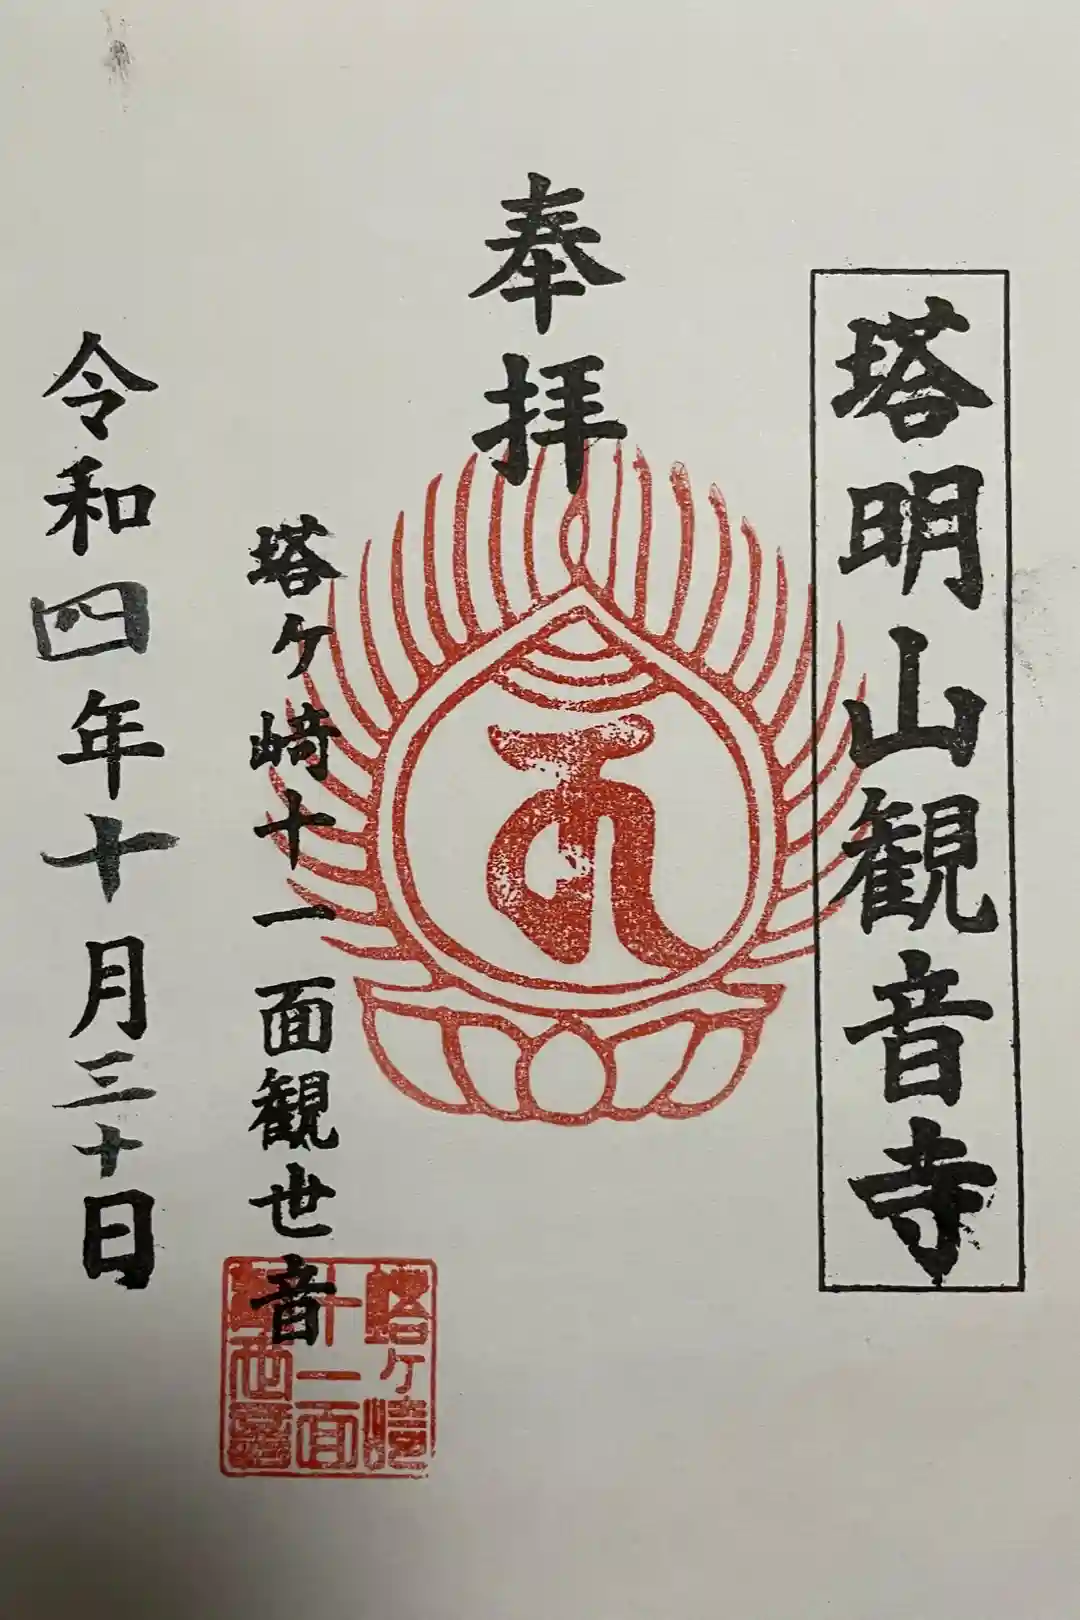 塔明山観音寺
奉拝
塔ケ崎十一面観世音
令和四年十月三十日
塔ケ崎
十一面
観世音